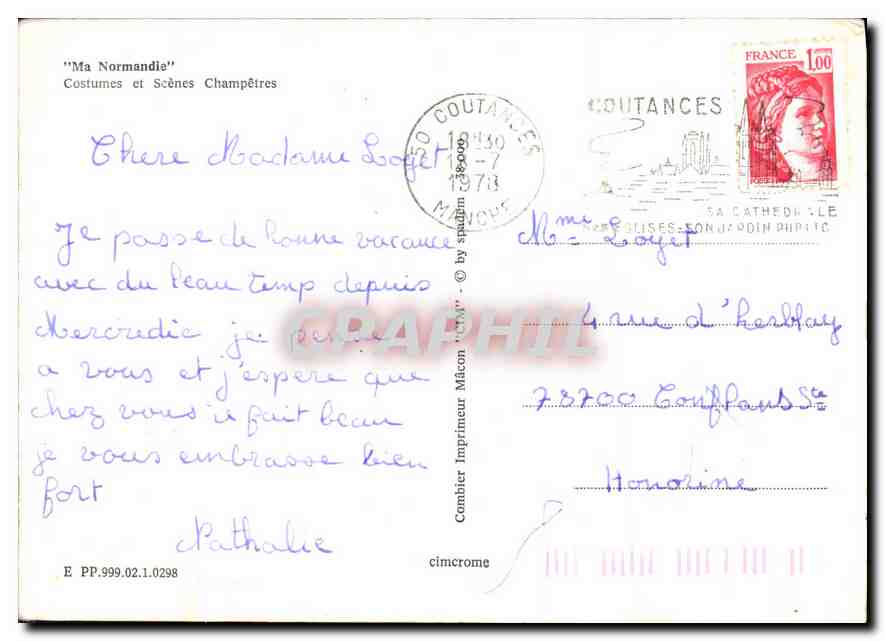 "Ma Normandie"
Costumes et Scènes Champêtres
Chere Madame Loyet
Je passe de bonne vacance
avec du beau temp depuis
Mercredie je pense
a vous et j'espere que
chez vous il fait beau
je vous embrasse bien
fort
Nathalie
E PP.999.02.1.0298
Combier Imprimeur Mâcon "CIM" - © by spadem
cimcrome
50 COUTANCES
1978
MANCHE
COUTANCES
SA CATHEDRALE
EGLISES - SON JARDIN PUBLIC
FRANCE 1,00
Mme Loyet
4 rue d'herblay
78700 Conflans Ste
Honorine
CPAPHIL